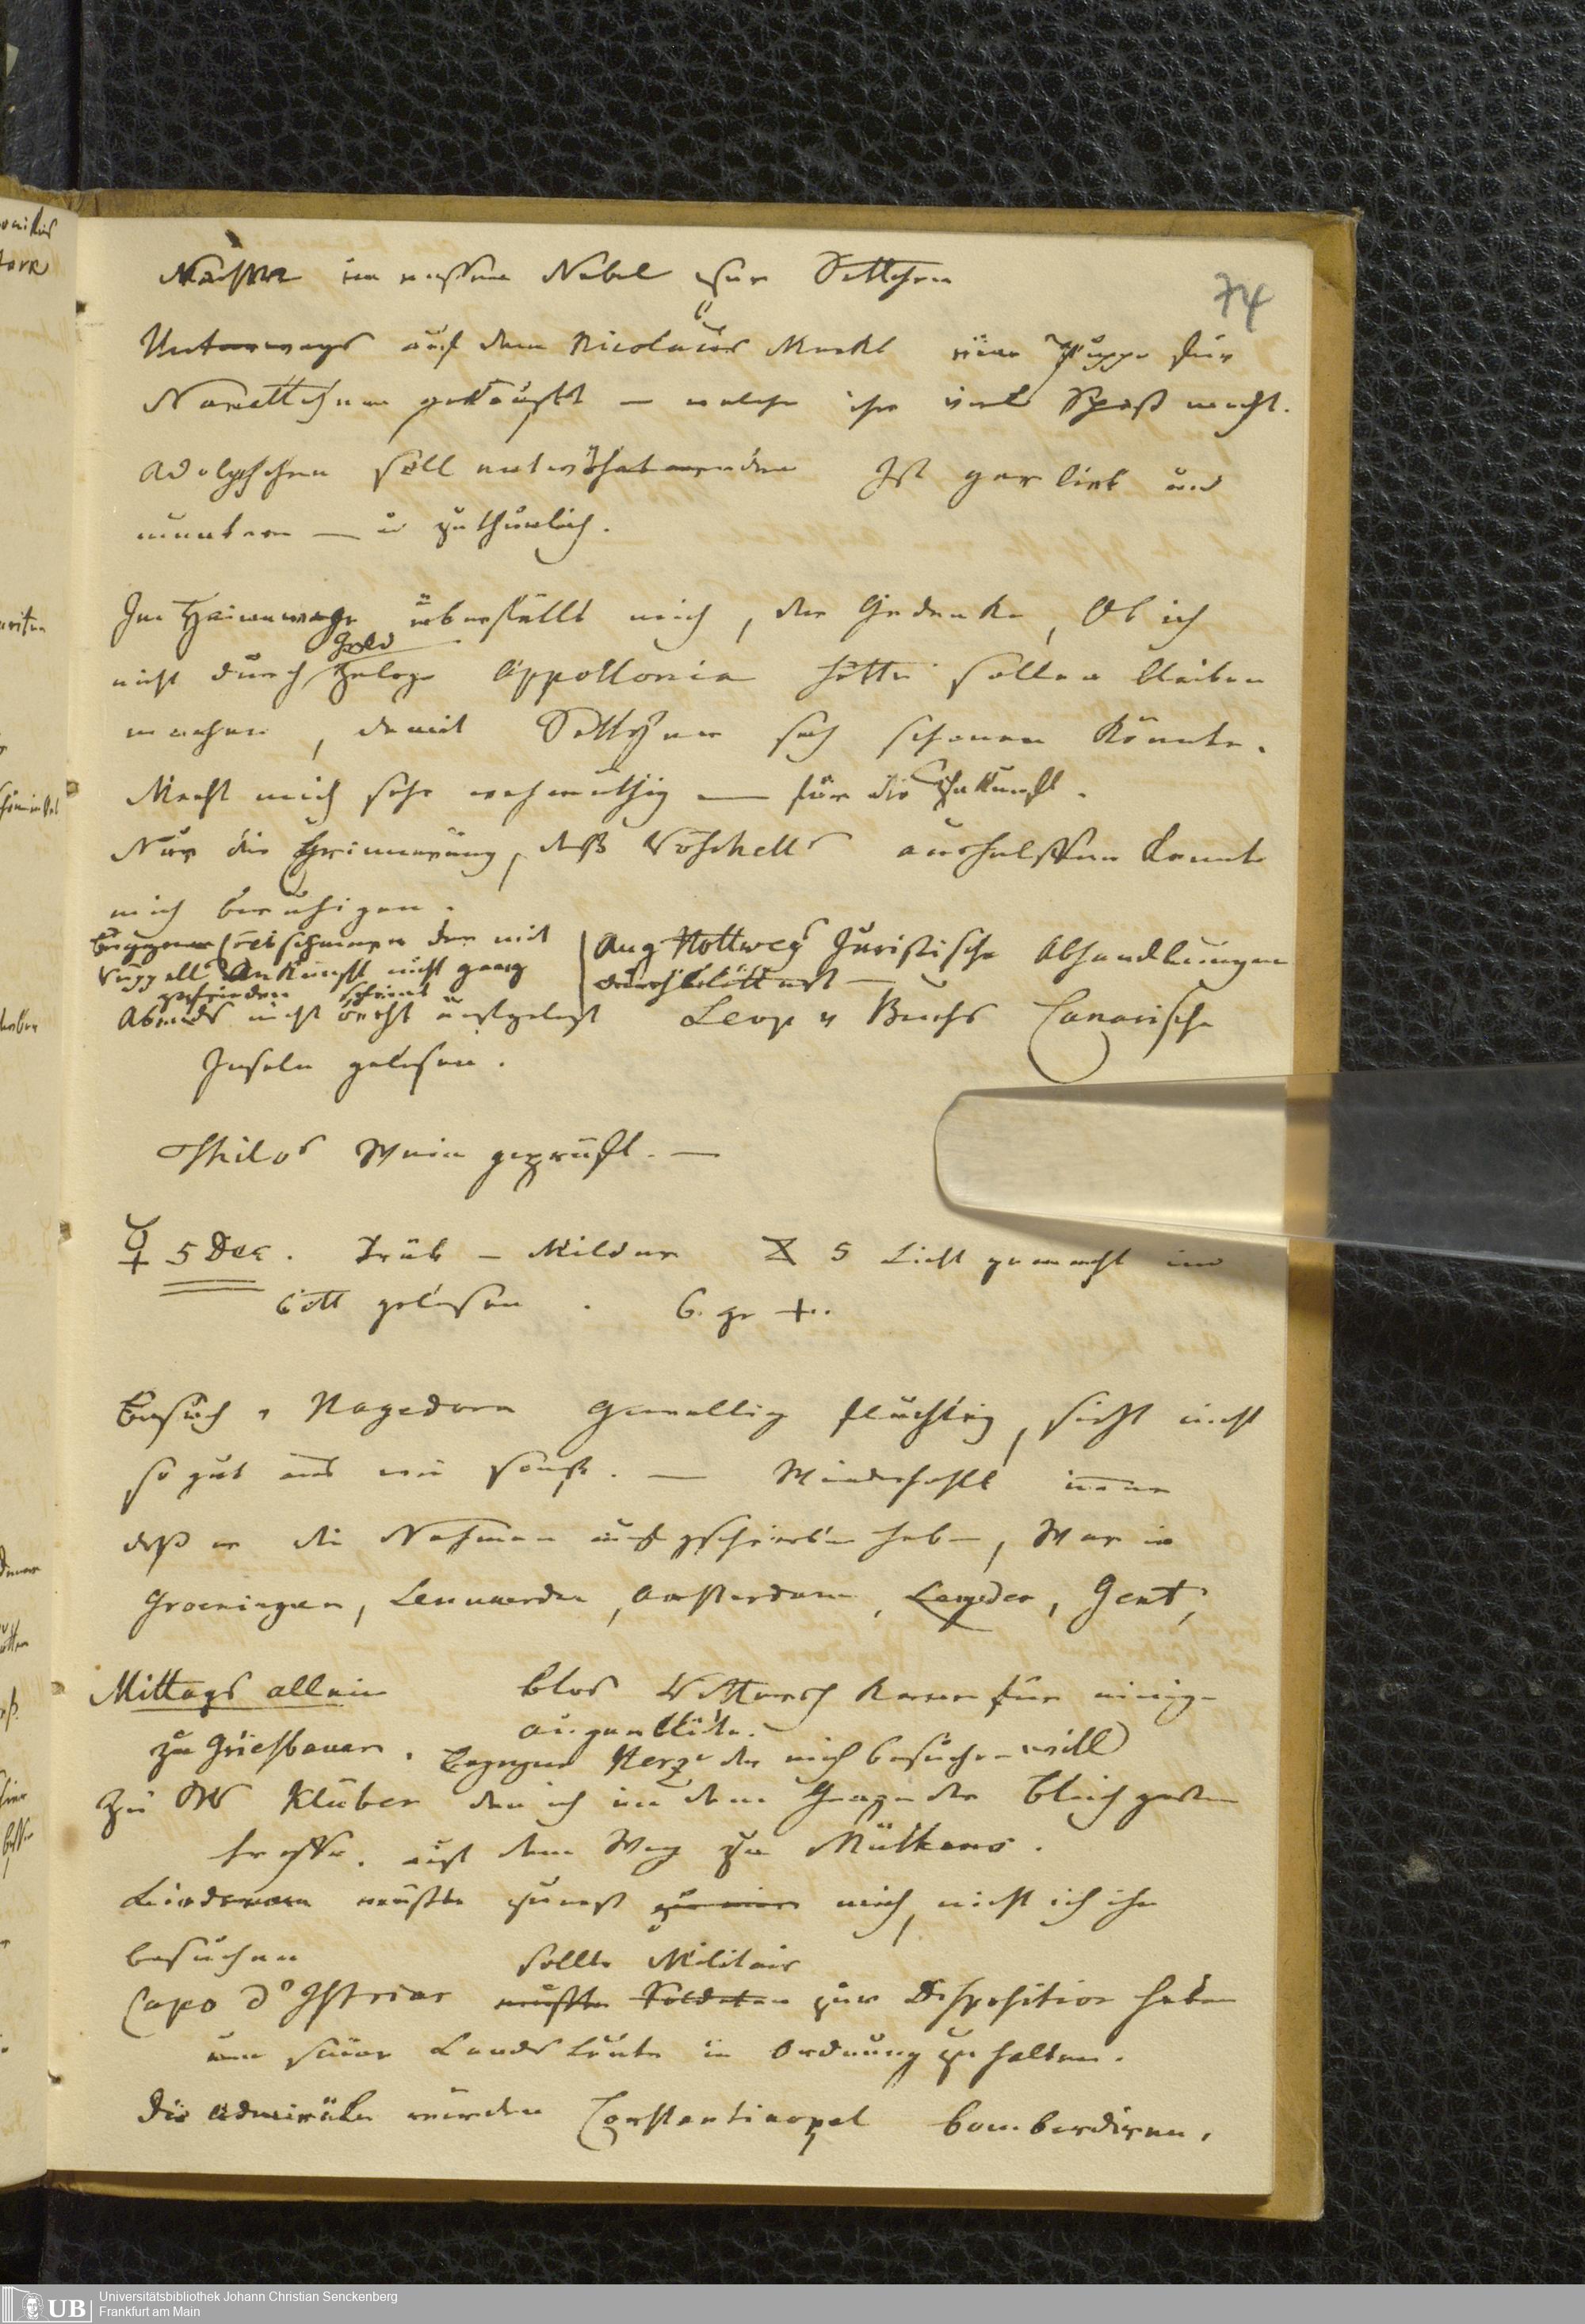 74
im nassen Nebel zur Settchen
Unterwegs auf dem Nicolaus Markt eine Puppe für
Nanettchen gekauft — welche ihr viel Spaß macht.
Adolphchen soll entwöhnt werden Ist gar lieb und
munter — u zuthunlich.
Im Heimwege überfällt mich, der Gedanke, Ob ich
nicht durch Geld Zulage Appollonia hätte sollen bleiben
machen, damit Settchen sich schonen könnte.
Macht mich sehr wehmüthig — für die Zukunft.
Nur die Erinnerung, daß aushelffen konnte
mich beruhigen.
der mit
Ankunft nicht ganz
zufrieden scheint
Aug Hollweg Juristische Abhandlungen
durchblättert —
Abends nicht recht aufgelegt Leop v Buchs Canarische
Inseln gelesen.
Thilos Wein geprüft. —
♀ 5 Dec. Trüb — Milder 5 Licht gemacht im
Bett gelesen. 6. gr +.
Besuch v Hagedorn flüchtig, sieht nicht
so gut aus wie sonst. — Wiederhohlt
daß er die Nahmen aufgeschrieben habe, War in
Groeningen, Leuwarden, Amsterdam, Leyden, Gent,
Mittags allein blos kam für einige
Augenblicke.
zu Griesbauer. Begegne Herz der mich besuchen will
Zu Klüber den ich in dem
treffe. auf dem Weg zu Mülhens.
müßte zuerst zu mir mich, nicht ich ihn
besuchen
sollte Militair
Capo d'Istrias müßte Soldaten zur Disposition haben
um seine Landsleute in Ordnung zu halten.
Die Admiräle würden Constantinopel bombardiren.
UB Universitätsbibliothek Johann Christian Senckenberg
Frankfurt am Main